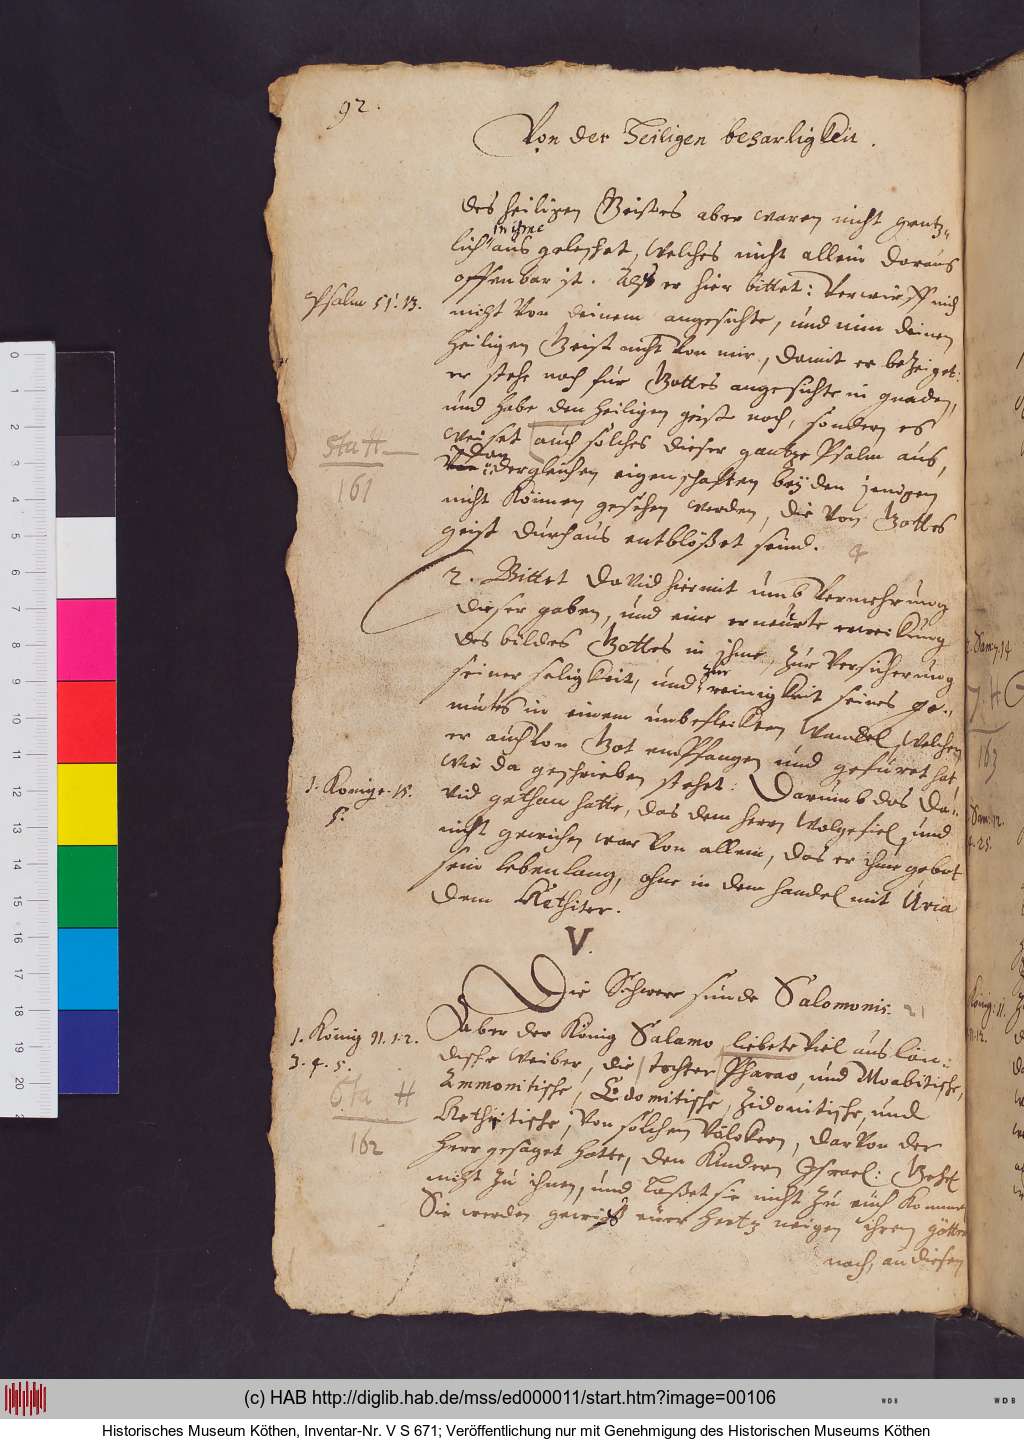 92.
Von der Heiligen beharligkeit.
des heiligen Geistes aber waren nicht gentz-
in ihme
lich aus geleschet, welches nicht allein daraus
offenbar ist. das er hier bittet: Verwirff mich
Psalm 51. 13.
nicht von deinem angesichte, und nim deinen
heiligen Geist nicht von mir, damit er bezeiget:
er stehe noch für Gottes angesichte in gnaden,
und habe den heiligen geist noch, sondern es
weiset auch solches dieser gantze Psalm aus,
Sta H
161
dergleichen eigenschafften beÿ den jenigen
nicht können gesehen werden, die von Gottes
geist durchaus entblößet seind.
2. Bittet David hiermit umb vermehrung
dieser gaben, und eine erneurte erweckung
des bildes Gottes in ihme, zur versicherung
seiner seligkeit, und zur reinigkeit seines ge-
mütes in einem unbefleckten wandel, welchen
er auch von Got empfangen und gefüret hat
wie da geschrieben stehet: Darumb das Da-
1. Könige. 15.
5.
vid gethan hatte, das dem herrn wolgefiel, und
nicht gewichen war von allem, das er ihme gebot
sein lebenlang, ohne in dem handel mit Uria
dem Hethiter.
V.
Die Schwere sünde Salomonis. 21
Aber der König Salomo liebete viel auslän-
1. König 11. 1. 2.
3. 4. 5.
dische weiber, die tochter Pharao, und Moabitische,
Ammonitische, Edomitische, Zidonitische, und
Sta H
162
Hethitische, von solchen völckern, darvon der
Herr gesaget hatte, den Kindern Israel: Gehet
nicht zu ihnen, und laßet sie nicht zu euch komme
Sie werden gewiß euer hertz neigen ihren götter
nach, an diesen
2. Sam. 7. 14
163
Sam. 12.
25.
König. 11.
12.
(c) HAB http://diglib.hab.de/mss/ed000011/start.htm?image=00106
WDB
WDB
Historisches Museum Köthen, Inventar-Nr. V S 671; Veröffentlichung nur mit Genehmigung des Historischen Museums Köthen